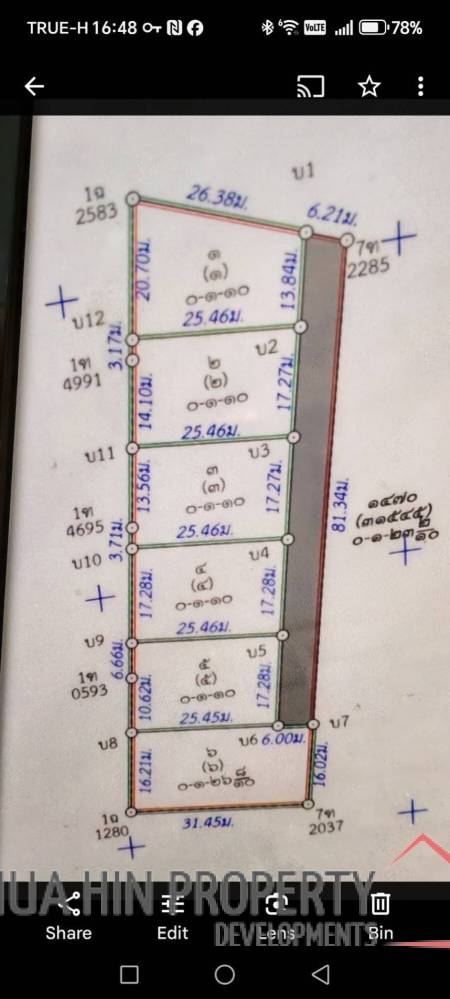 TRUE-H 16:48
VoLTE
78%
บ1
26.38ม.
6.21ม.
1ฉ
2583
7ท
2285
20.70ม.
๑
(๑)
๐-๑-๑๐
13.84ม.
25.46ม.
บ12
3.17ม.
1ท
4991
บ2
๒
(๒)
๐-๑-๑๐
14.10ม.
17.27ม.
25.46ม.
บ11
บ3
๓
(๓)
๐-๑-๑๐
13.56ม.
17.27ม.
81.34ม.
๑๔๗๐
1ท
4695
3.71ม.
25.46ม.
บ10
บ4
๔
(๔)
๐-๑-๑๐
17.28ม.
17.28ม.
25.46ม.
บ9
บ5
6.66ม.
1ท
0593
๕
(๕)
๐-๑-๑๐
10.62ม.
17.28ม.
25.45ม.
บ8
บ6
6.00ม.
บ7
๖
(๖)
๐-๑-๒๖ ๘/๑๐
16.21ม.
16.02ม.
1ฉ
1280
31.45ม.
7ท
2037
HUA HIN PROPERTY
DEVELOPMENTS
Share
Edit
Lens
Bin